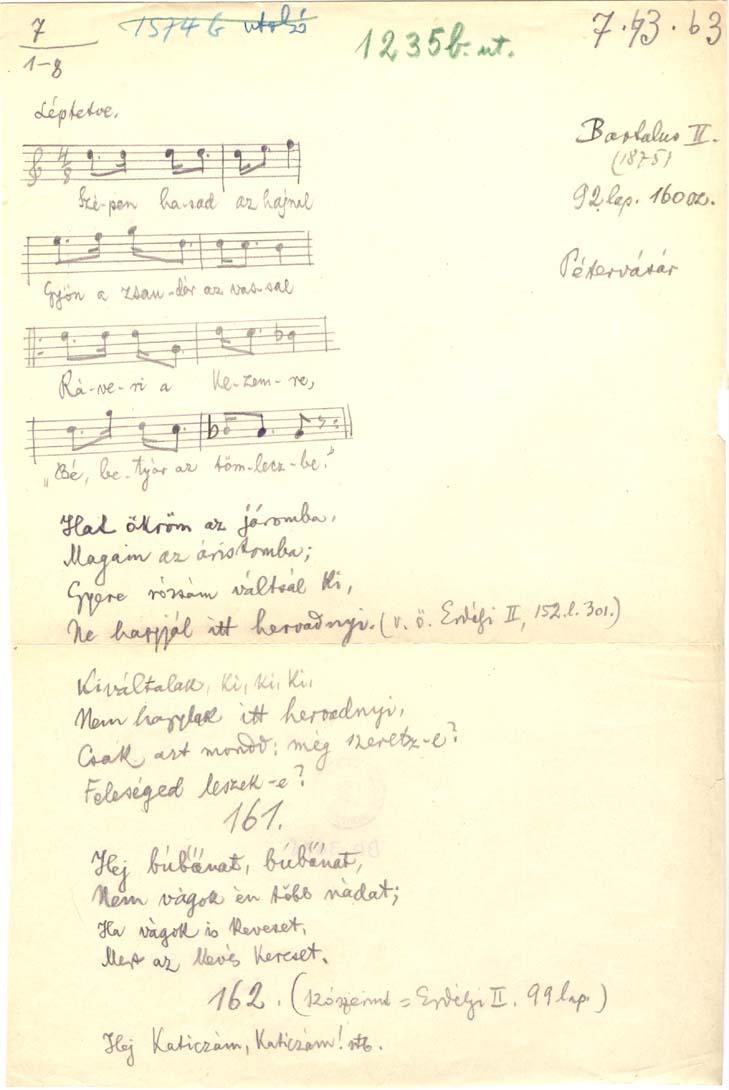 7
1-8
1574 b utolsó
1235 b. ut.
Léptetve.
Bartalus II.
(1875)
92. lap. 160 sz.
Pétervására
4/8
Szé-pen ha-sad az hajnal
Gyön a zsan-dár az vas-sal
Rá-ve-ri a ke-zem-re,
„Bé, be-tyár az töm-lecz-be."
Hat ökröm az járomba,
Magam az áristomba;
Gyere rózsám váltsál ki,
Ne hagyjál itt hervadnyi. (v. ö. Erdélyi II, 152. l. 301.)
Kiváltalak, ki, ki, ki,
Nem hagylak itt hervadnyi,
Csak azt mondd: még szeretz-e?
Feleséged leszek-e?
161.
Hej búbánat, búbánat,
Nem vágok én több nádat;
Ha vágok is keveset,
Mert az kevés kereset.
162. (szószerint = Erdélyi II. 99 lap.)
Hej Katiczám, Katiczám! stb.